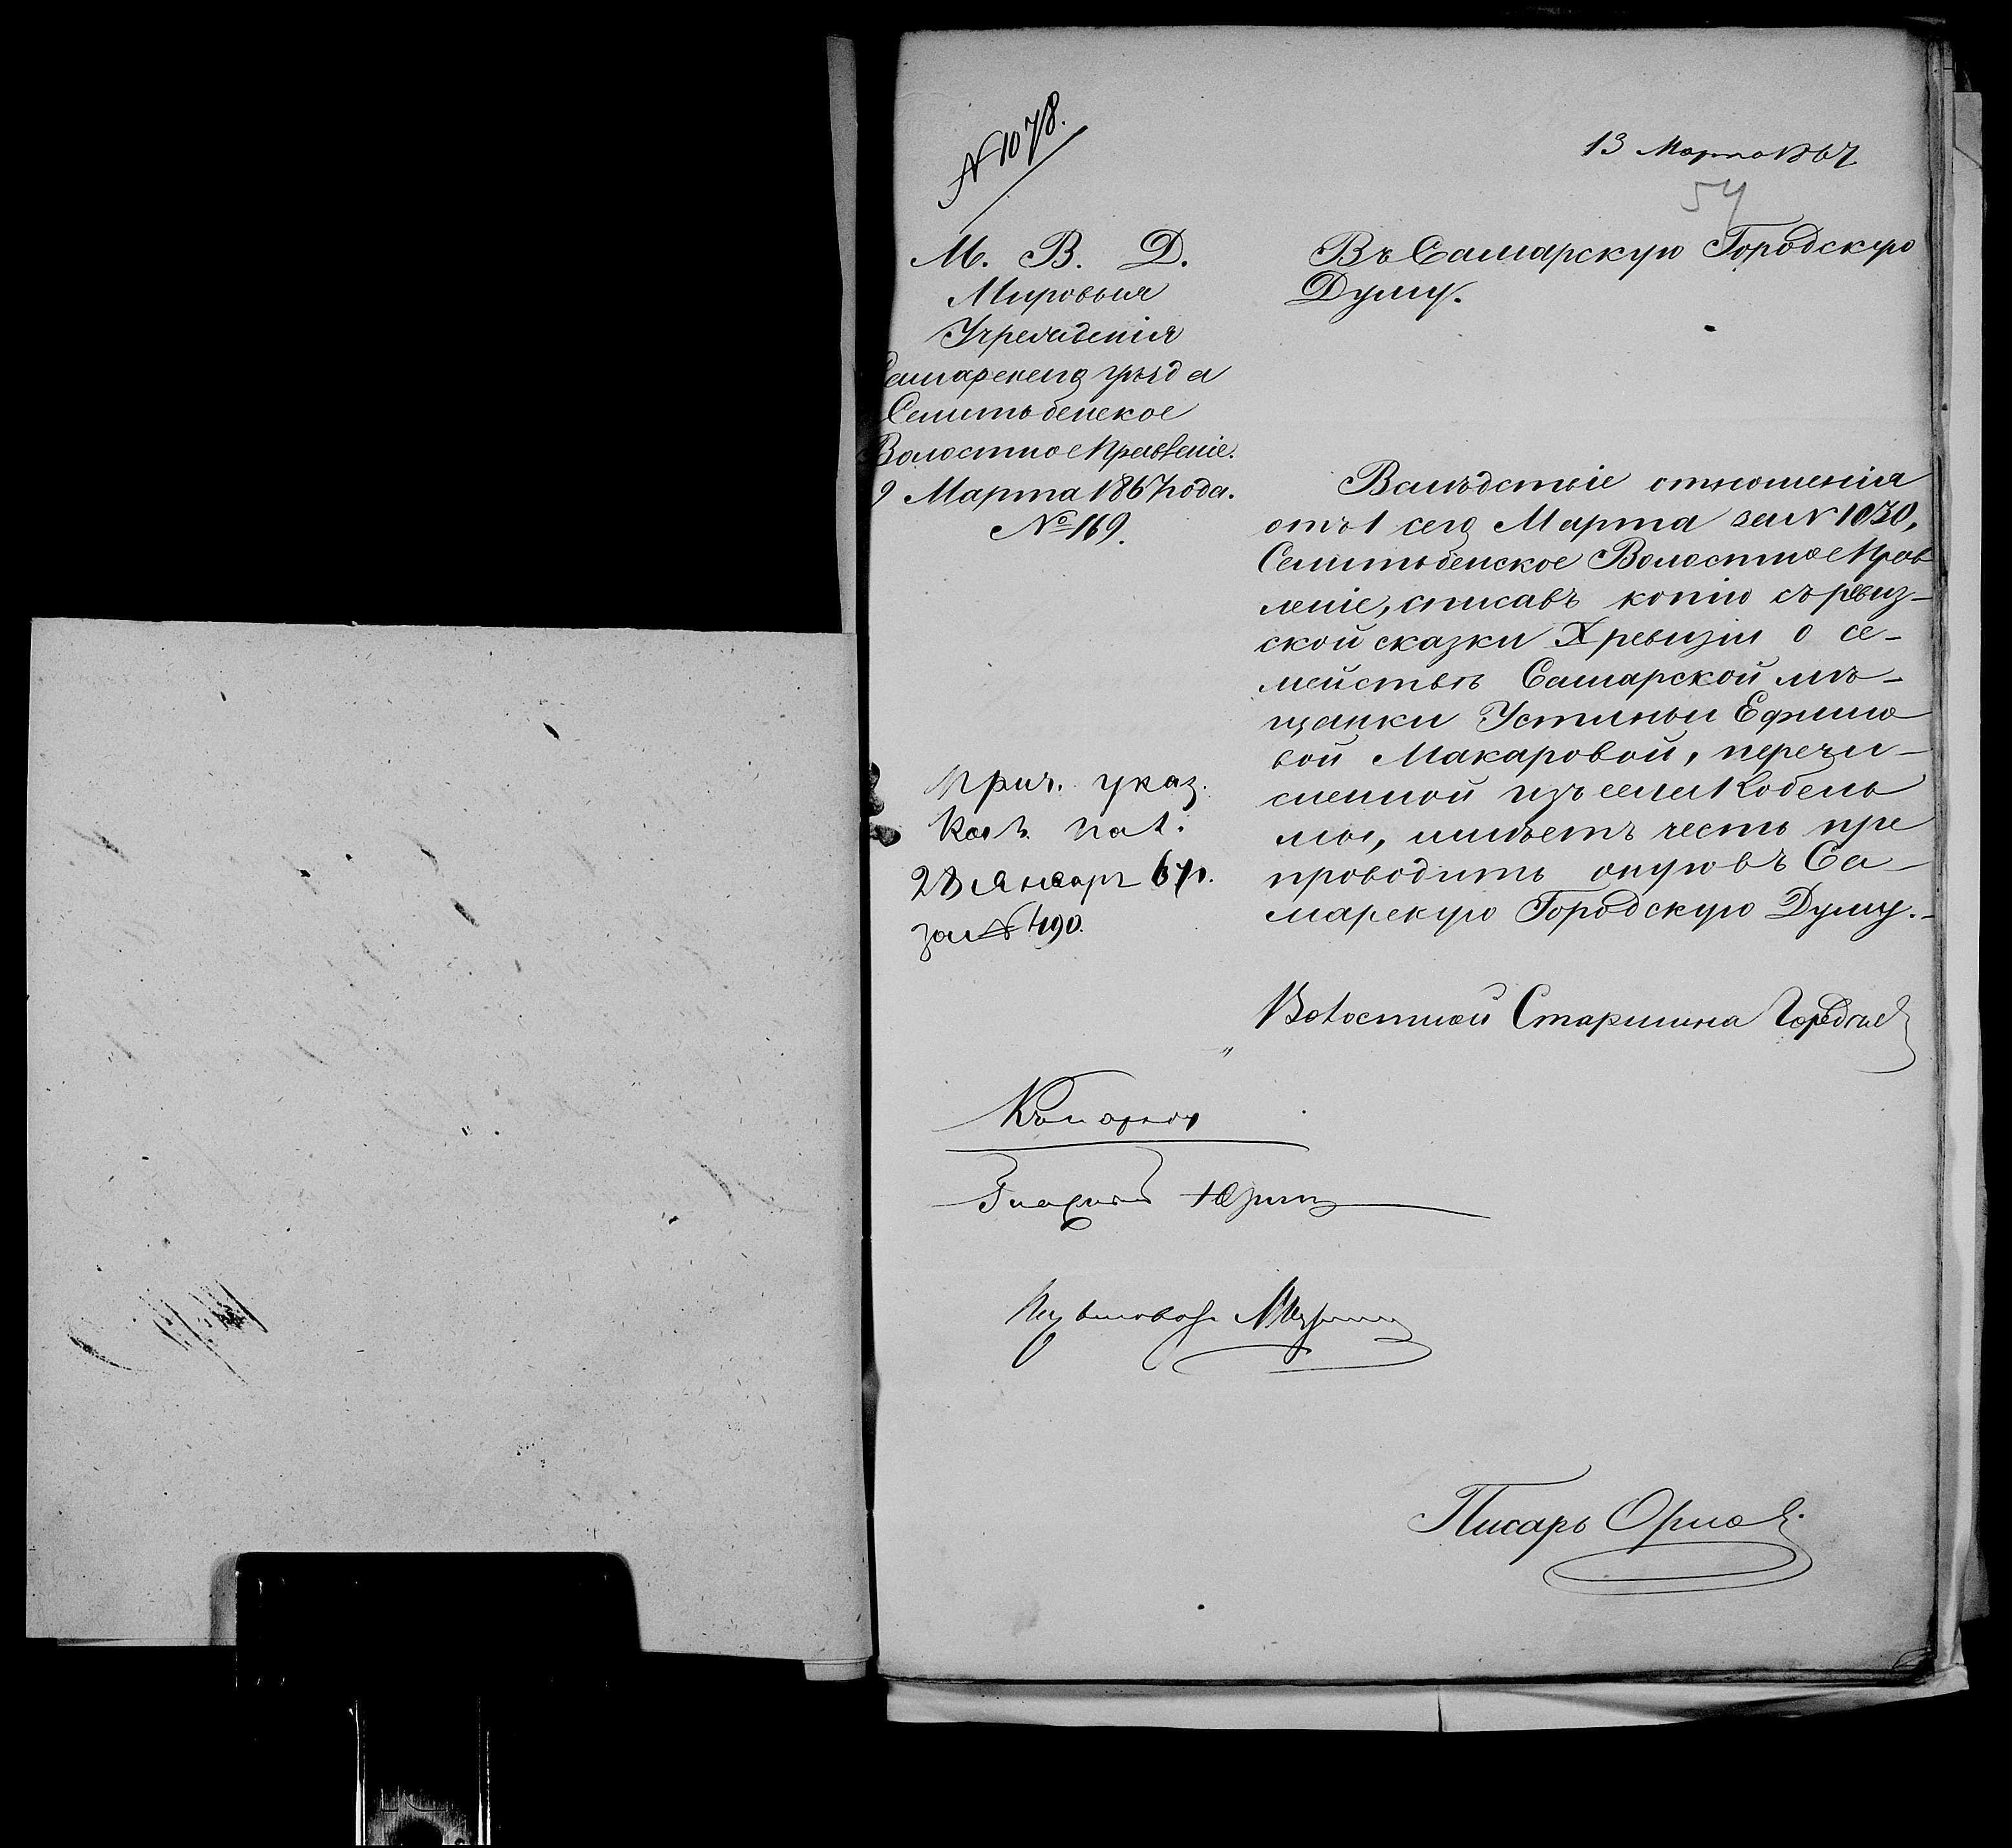 № 1078.
13 Марта 1867
54
М. В. Д.
Мировыя
Учрежденія
Самарскаго уѣзда
Семитѣбенское
Волостное Правленіе.
9 Марта 1867 года.
№ 169.
Въ Самарскую Городскую
Думу.
Вслѣдствіе отношенія
отъ 1 сего Марта за № 1030,
Семитѣбенское Волостное Прав
леніе, списавъ копію съ ревиз-
ской сказки X ревизіи о се-
мействѣ Самарской мѣ-
щанки Устиньи Ефимо
вой Макаровой, перечи-
сленной изъ села Кобель
мы, имѣетъ честь пре
проводить оную въ Са-
марскую Городскую Думу.-
Прич. указ.
Каз. Пал.
28 Январ 67 г.
за № 490.
Волостной Старшина
Гласный
Писарь Орлов